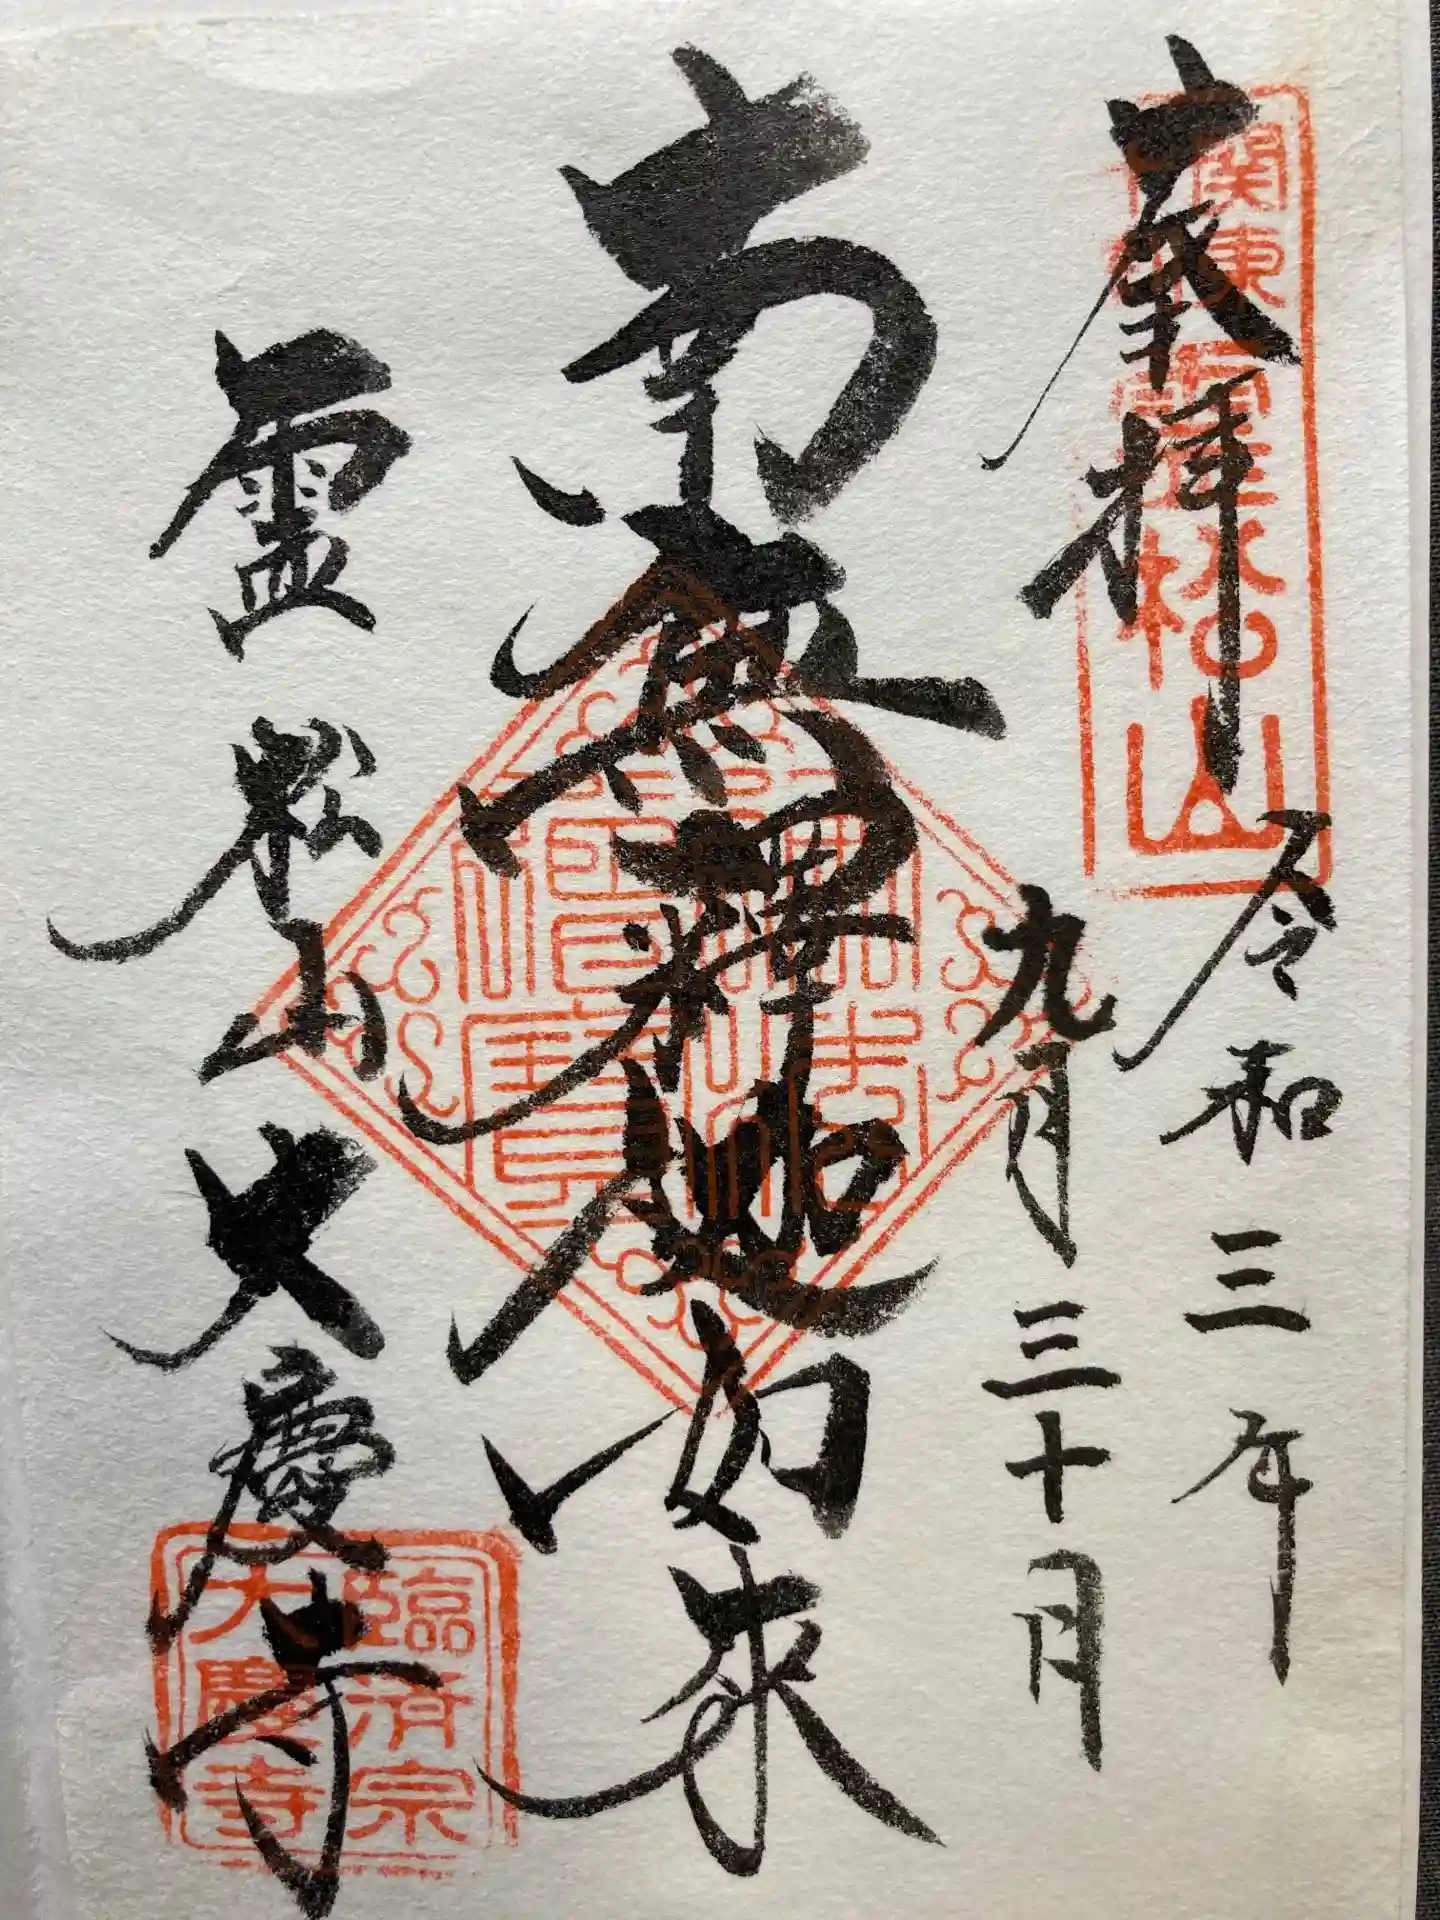 奉拝
令和三年
九月三十日
南無釋迦如来
霊松山大慶寺
関東
霊松山
佛法
僧寶
臨済宗
大慶寺